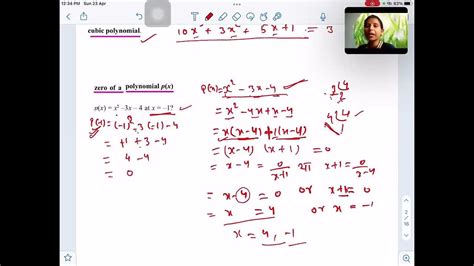 12:34 PM Sun 23 Apr
63%
cubic polynomial
10x³ + 3x² + 5x + 1 = 3
zero of a polynomial p(x)
p(x) = x² -3x - 4 at x = -1?
P(-1) = (-1)² - 3(-1) - 4
= +1 + 3 - 4
= 4 - 4
= 0
P(x) = x² - 3x - 4
= x² - 4x + x - 4
= x(x-4) + 1(x-4)
= (x-4) (x+1) = 0
= x-4 = 0/x+1 या x+1 = 0/x-4
= x-4 = 0 or x+1 = 0
= x = 4 or x = -1
x = 4, -1
2 4
2
4 4
1
2
/
16